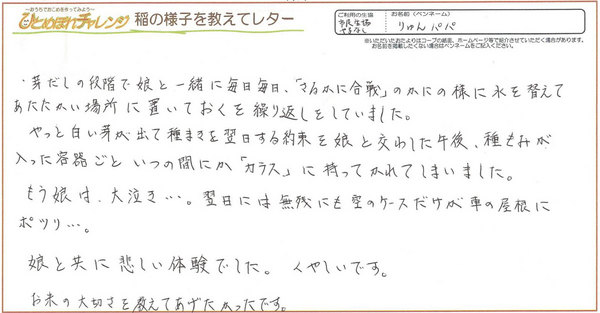 ～おうちでおこめを作ってみよう～
ひとめぼれチャレンジ 稲の様子を教えてレター
ご利用の生協 お名前（ペンネーム）
市民生協やまなし りゅんパパ
※いただいたおたよりはコープの紙面、ホームページ等で紹介させていただく場合があります。
お名前を掲載したくない場合はペンネームをご記入ください。
・芽だしの段階で娘と一緒に毎日毎日、「さるかに合戦」のかにの様に水を替えて
あたたかい場所に置いておくを繰り返しをしていました。
やっと白い芽が出て種まきを翌日する約束を娘と交わした午後、種もみが
入った容器ごといつの間にか「カラス」に持ってかれてしまいました。
もう娘は、大泣き…。翌日には無残にも空のケースだけが車の屋根に
ポツリ…。
娘と共に悲しい体験でした。くやしいです。
お米の大切さを教えてあげたかったです。